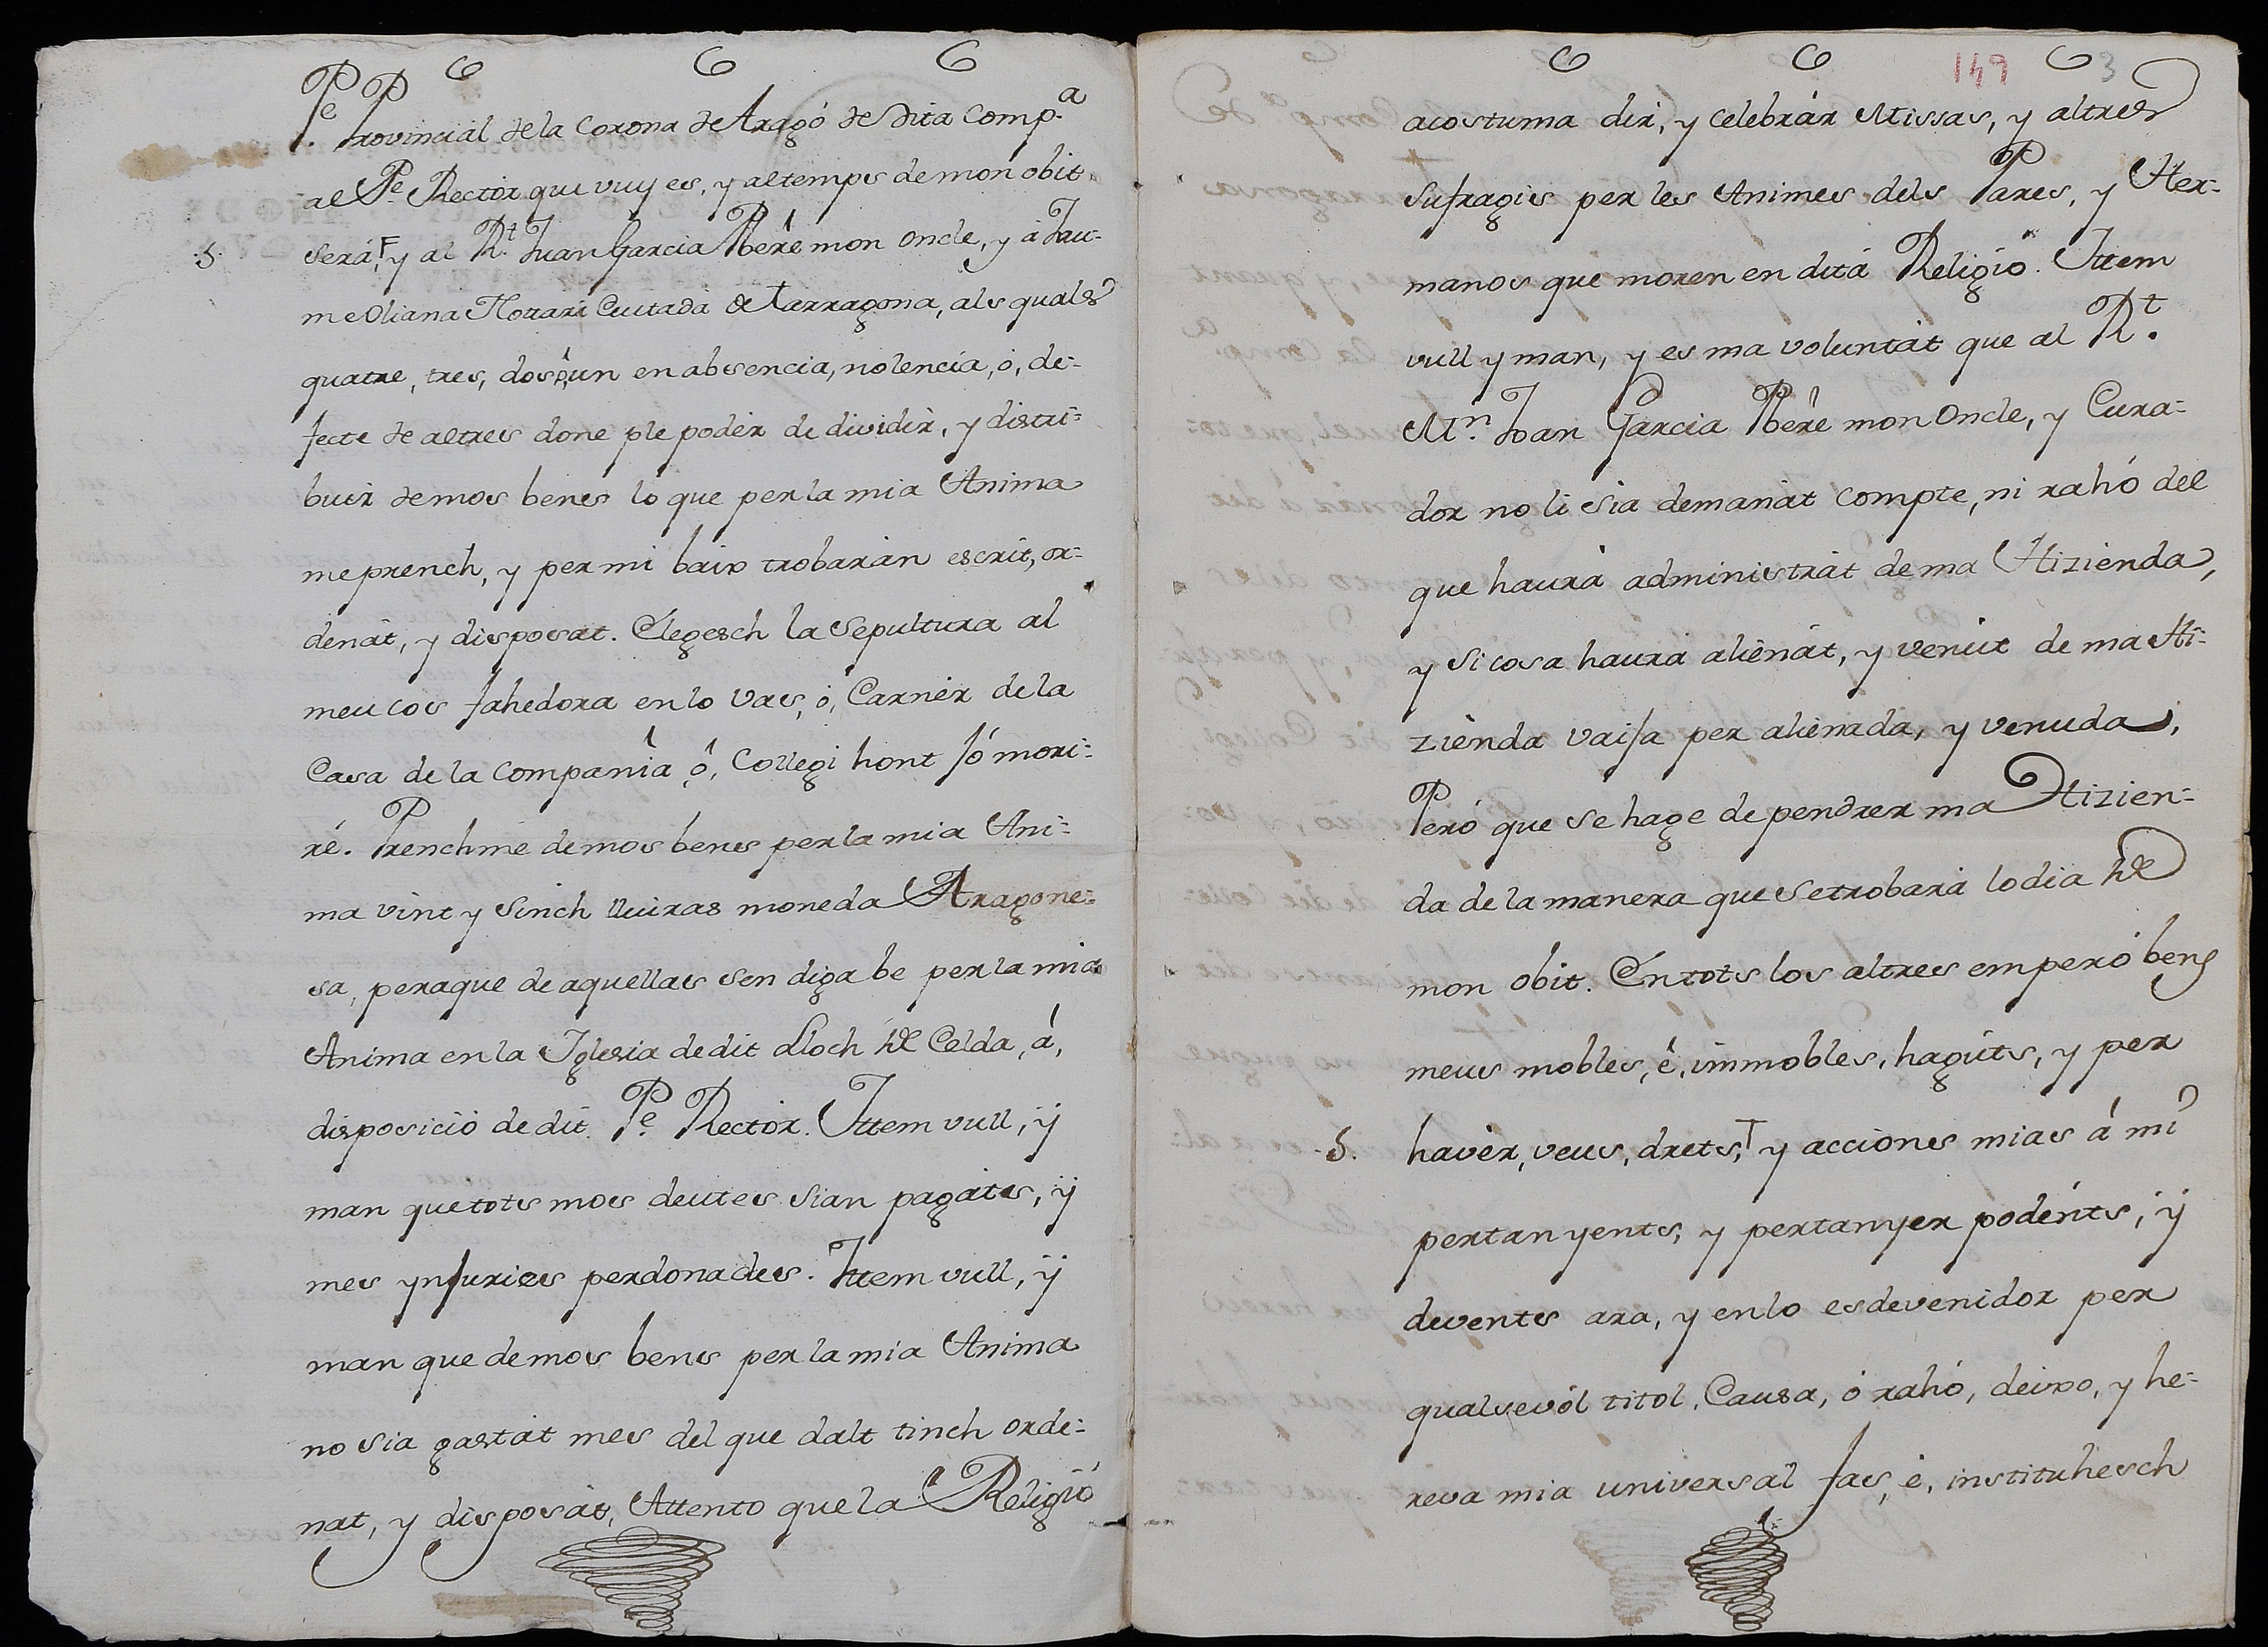 P.e Provincial de la Corona de Aragó de dita Comp.a
al P.e Rector que vuy es, y al temps de mon obit
.5. será, y al R.t Juan Garcia Pbêre mon oncle, y á Jau-
me Oliana Notari Ciutadá de Tarragona, als quals
quatre, tres, dos, ó, un en absencia, nolencia, ó, de-
fecte de altres done ple poder de dividir, y distri-
buir de mos bens lo que per la mia Anima
me prench, y per mi baix trobarán escrit, or-
denát, y disposat. Elegesch la Sepultura al
meu cos fahedora en lo Vas, ó, Carnér de la
Casa de la Compania ô, Collegi hont Jó mori-
ré. Prenchme de mos bens per la mia Ani-
ma vint y Sinch lliuras moneda Aragone-
sa, peraque de aquellas sen diga be per la mia
Anima en la Iglesia de dit Lloch de Celda, á,
disposició de dit P.e Rector. Ittem vull, ÿ
man que tots mos deutes sian pagats, ÿ
mes ynjuries perdonades. Ittem vull, ÿ
man que de mos bens per la mia Anima
no sia gastat mes del que dalt tinch orde-
nat, y disposát, Attento que la Religió
149 3
acostuma dir, y celebrár Missas, y altres
Sufragis per les Animes dels Pares, y Her-
manos que moren en ditá Religió. Ittem
vull y man, y es ma voluntát que al R.t
M.n Joan Garcia Pbêre mon Oncle, y Cura-
dor no li sia demanát compte, ni rahó del
que haurá administrát de ma Hizienda,
y si cosa haurá alienát, y venut de ma Hi-
zienda vaija per alienada, y venuda,
Peró que se hage de pendrer ma Hizien-
da de la manera que se trobará lo dia de
mon obit. En tots los altres emperó bens
meus mobles, é, immobles, haguts, y per
.5. havér, veus, drets, y accions mias á mi
pertanyents, y pertanyer podénts, ÿ
devents ara, y en lo esdevenidor per
qualsevól titol, Causa, ó rahó, deixo, y he-
reva mia universal fas, é, instituhesch